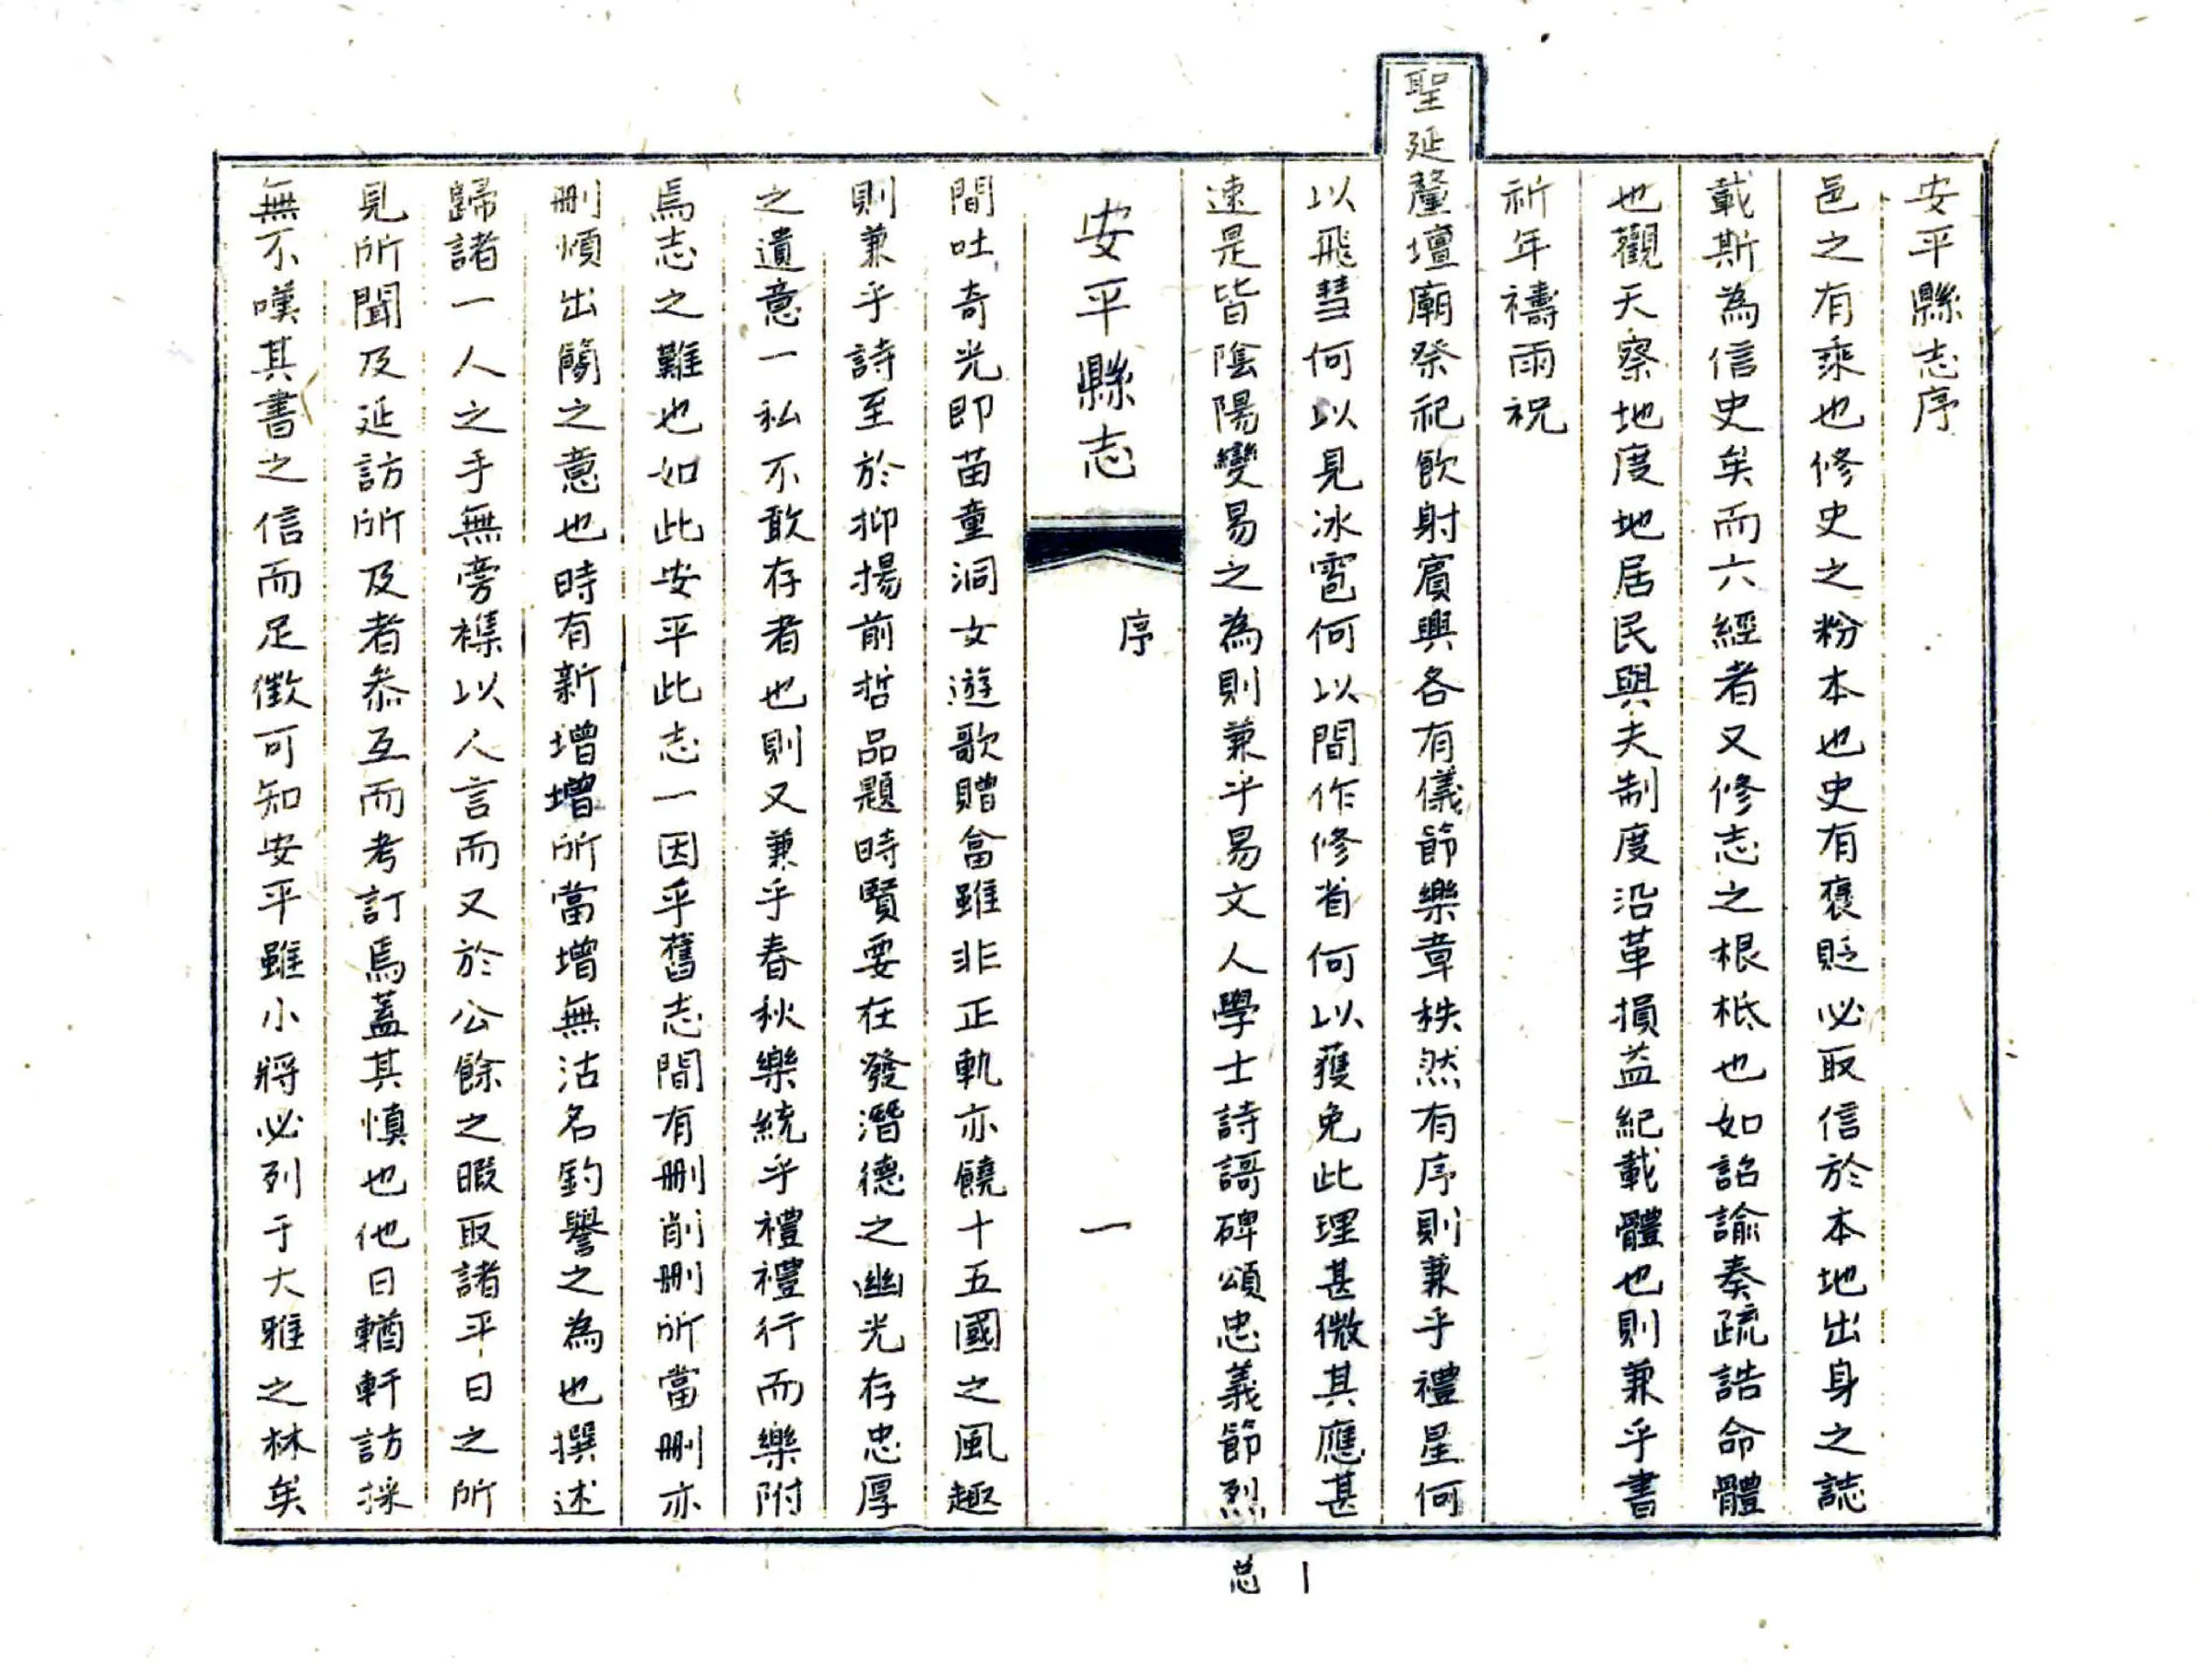 安平縣志序
邑之有乘也修史之粉本也史有褒貶必取信於本地出身之誌
載斯為信史矣而六經者又修志之根柢也如詔諭奏疏誥命體
也觀天察地度地居民與夫制度沿革損益紀載體也則兼乎書
祈年禱雨祝
聖延釐壇廟祭祀飲射賓興各有儀節樂章秩然有序則兼乎禮星何
以飛彗何以見冰雹何以間作修省何以獲免此理甚微其應甚
速是皆陰陽變易之為則兼乎易文人學士詩謌碑頌忠義節烈
安平縣志
序
一
間吐奇光即苗童洞女遊歌贈畣雖非正軌亦饒十五國之風趣
則兼乎詩至於抑揚前哲品題時賢要在發潛德之幽光存忠厚
之遺意一私不敢存者也則又兼乎春秋樂統乎禮禮行而樂附
焉志之難也如此安平此志一因乎舊志間有刪削刪所當刪亦
刪煩出簡之意也時有新增增所當增無沽名釣譽之為也撰述
歸諸一人之手無旁襍以人言而又於公餘之暇取諸平日之所
見所聞及延訪所及者叅互而考訂焉蓋其慎也他日輶軒訪採
無不嘆其書之信而足徵可知安平雖小將必列于大雅之林矣
总 1